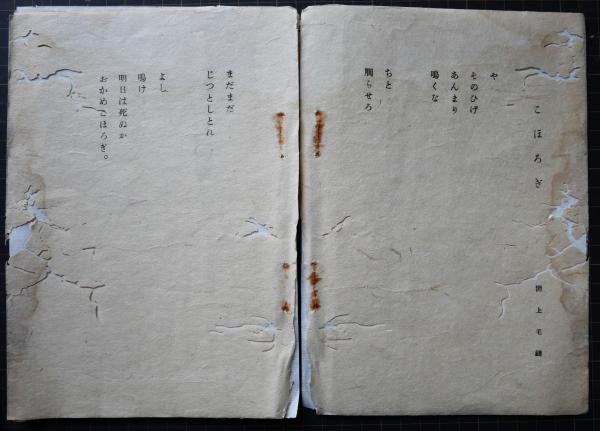 こほろぎ
淵上毛錢
や
そのひげ
あんまり
鳴くな
ちと
觸らせろ
まだまだ
じつとしとれ
よし
鳴け
明日は死ぬか
おかめこほろぎ。